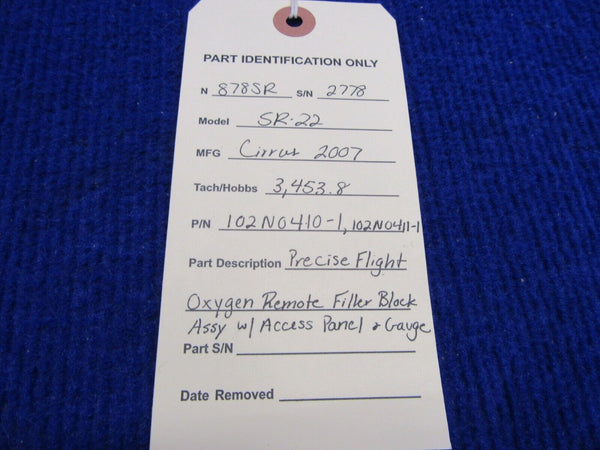 PART IDENTIFICATION ONLY
N 878SR S/N 2778
Model SR-22
MFG Cirrus 2007
Tach/Hobbs 3,453.8
P/N 102N0410-1, 102N0411-1
Part Description Precise Flight
Oxygen Remote Filler Block
Assy w/ Access Panel & Gauge
Part S/N
Date Removed